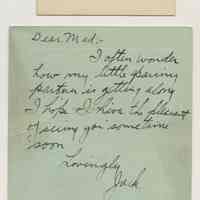 Dear Med:-
I often wonder
how my little
partner is getting along
I hope I have the pleasure
of seeing you sometime
soon
Lovingly
Jack